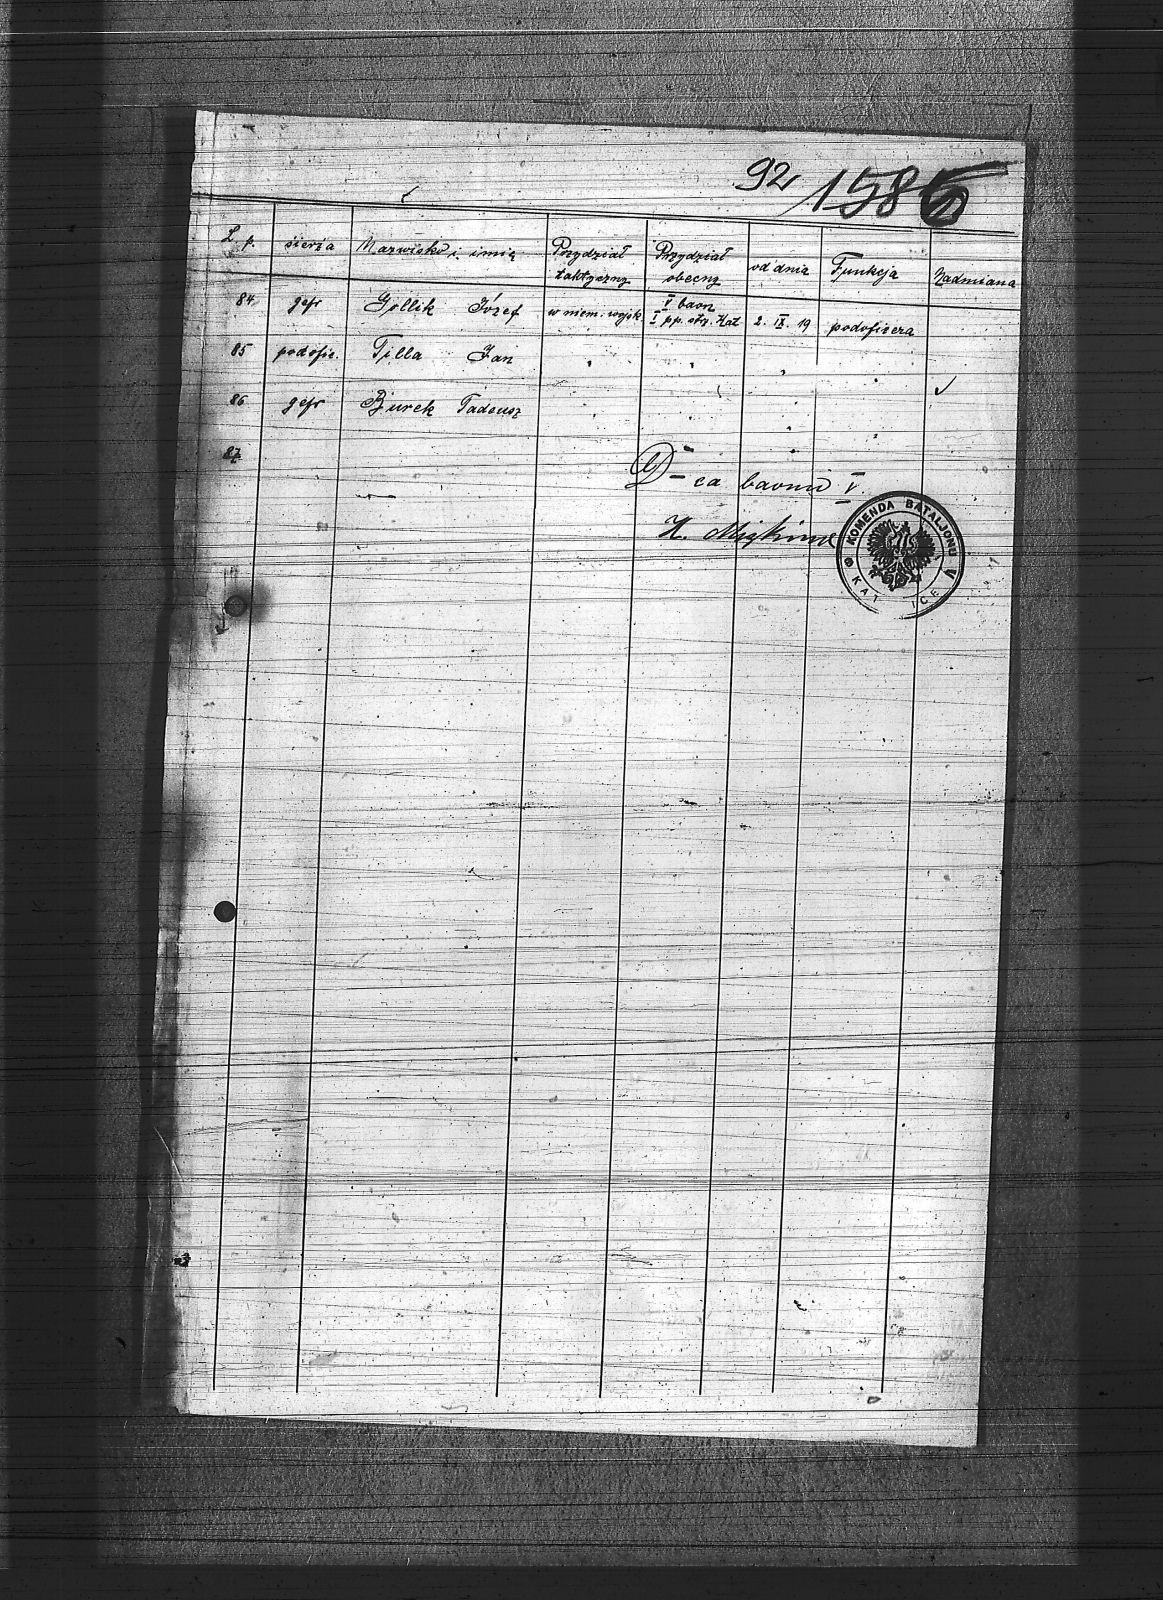 92 158
L. p. sierża Nazwisko i imię Przydział taktyczny Przydział obecny od dnia Funkcja Nadmiana
84 gefr Gollik Józef w niem. wojsk V baon I pp. str. Kat 2. IX. 19 podoficera
85 podofic. Tilla Jan " " " "
86 gefr Burek Tadeusz " " " "
87
D-ca baonu V.
KOMENDA BATALJONU V
KAT ICE